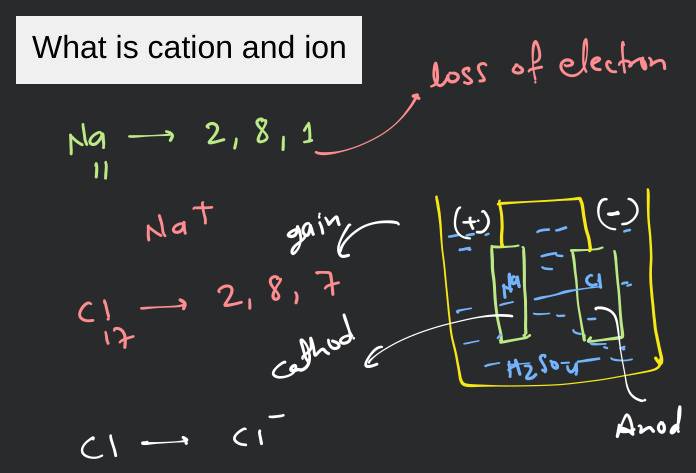 What is cation and ion
loss of electron
Na → 2, 8, 1
11
Na⁺
gain
Cl → 2, 8, 7
17
(+) (-)
Na Cl
H₂SO₄
cathod
Anod
Cl → Cl⁻